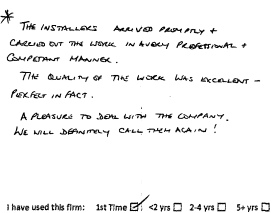 * THE INSTALLERS ARRIVED PROMPTLY +
CARRIED OUT THE WORK IN A VERY PROFESSIONAL +
COMPETANT MANNER.
THE QUALITY OF THE WORK WAS EXCELLENT -
PERFECT IN FACT.
A PLEASURE TO DEAL WITH THE COMPANY.
WE WILL DEFINITELY CALL THEM AGAIN!
I have used this firm: 1st Time ☑ <2 yrs ☐ 2-4 yrs ☐ 5+ yrs ☐